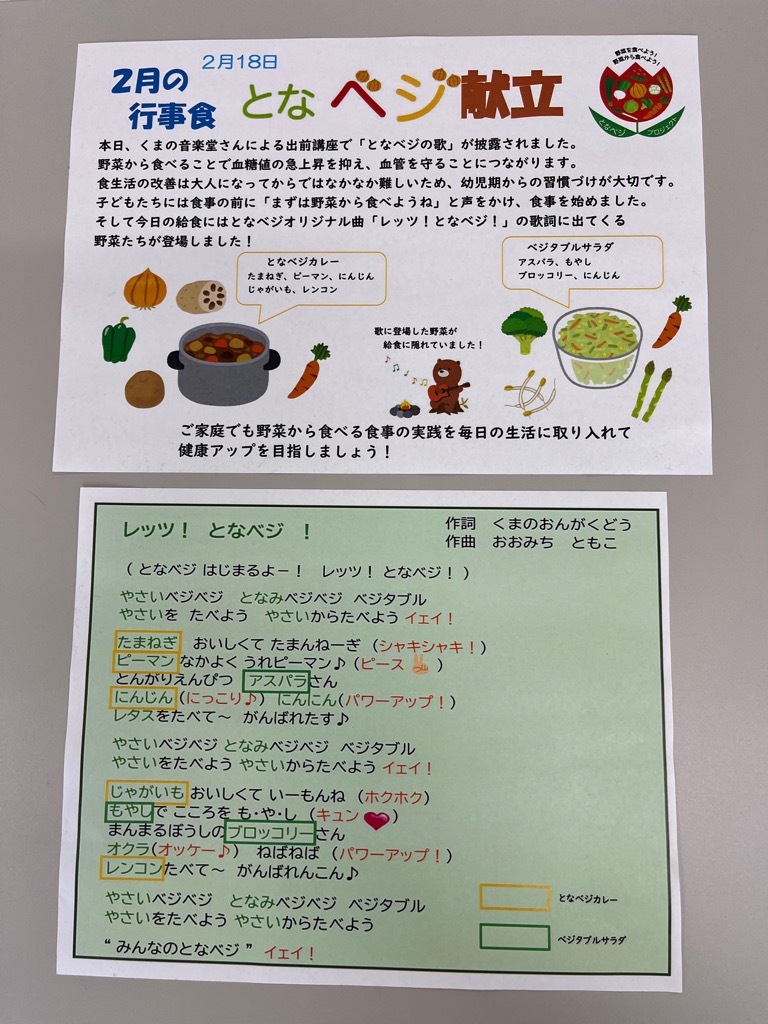 2月18日
2月の
行事食
となベジ献立
野菜を食べよう！
野菜から食べよう！
となベジ プロジェクト
本日、くまの音楽堂さんによる出前講座で「となベジの歌」が披露されました。
野菜から食べることで血糖値の急上昇を抑え、血管を守ることにつながります。
食生活の改善は大人になってからではなかなか難しいため、幼児期からの習慣づけが大切です。
子どもたちには食事の前に「まずは野菜から食べようね」と声をかけ、食事を始めました。
そして今日の給食にはとなベジオリジナル曲「レッツ！となベジ！」の歌詞に出てくる
野菜たちが登場しました！
となベジカレー
たまねぎ、ピーマン、にんじん
じゃがいも、レンコン
ベジタブルサラダ
アスパラ、もやし
ブロッコリー、にんじん
歌に登場した野菜が
給食に隠れていました！
ご家庭でも野菜から食べる食事の実践を毎日の生活に取り入れて
健康アップを目指しましょう！
レッツ！ となベジ ！
作詞 くまのおんがくどう
作曲 おおみち ともこ
（ となベジ はじまるよー！ レッツ！ となベジ！ ）
やさいベジベジ となみベジベジ ベジタブル
やさいを たべよう やさいからたべよう イェイ！
たまねぎ おいしくて たまんねーぎ （シャキシャキ！）
ピーマン なかよく うれピーマン♪ （ピース✌）
とんがりえんぴつ アスパラさん
にんじん（にっこり♪） にんにん（パワーアップ！）
レタスをたべて～ がんばれたす♪
やさいベジベジ となみベジベジ ベジタブル
やさいをたべよう やさいからたべよう イェイ！
じゃがいも おいしくて いーもんね （ホクホク）
もやしで こころを も・や・し （キュン💗）
まんまるぼうしのブロッコリーさん
オクラ（オッケー♪） ねばねば （パワーアップ！）
レンコンたべて～ がんばれんこん♪
やさいベジベジ となみベジベジ ベジタブル
やさいをたべよう やさいからたべよう
“ みんなのとなベジ ” イェイ！
となベジカレー
ベジタブルサラダ